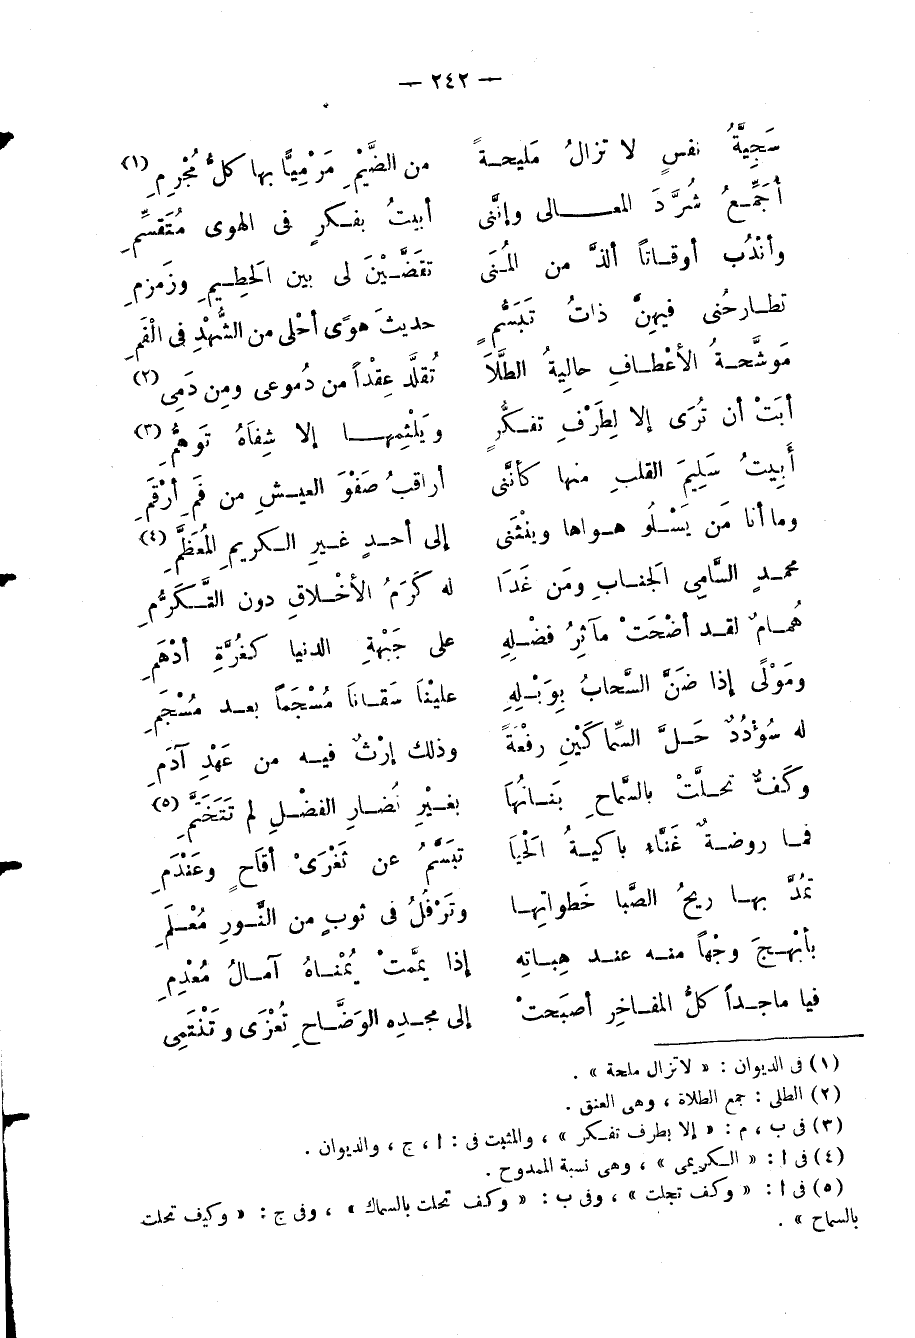 — ٢٤٢ —
سَجِيَّةُ نفسٍ لا تزالُ مَليحـةً من الضَّيْمِ مَرْمِيًّا بها كلُّ مُجْرِمِ (١)
أُجَمِّـعُ شُرَّدَ المعـــالى وإنَّنى أبيتُ بفـكرٍ فى الهوى مُتَقسِّمِ
وأنْدُب أوقـاتاً ألذَّ من المُنَى تقَضَّـيْنَ لى بين الحَطِـيمِ وزَمزمِ
تطـارحُنى فيهنَّ ذاتُ تَبَسُّمٍ حديثَ هوًى أحْلى من الشُّهْدِ فى الْفَمِ
مَوشَّحـةُ الأعْطـافِ حاليةُ الطَّلَا تُقلَّد عِقْداً من دُموعى ومِن دَمِى (٢)
أبَتْ أن تُرَى إلا لِطَرْفِ تفـكُّرٍ ويَلْثِمهـــا إلا شِفَاهُ تَوهُّمِ (٣)
أَبِيتُ سَلِيمَ القلبِ منها كأنَّنى أراقبُ صَفْوَ العيـشِ من فَمِ أرْقَمِ
وما أنا مَن يَسْـلُو هـواها وينْثَنى إلى أحـدٍ غـيرِ الـكريمِ المُعَظَّمِ (٤)
محمـدٍ السَّامِى الجَنابِ ومَن غَدَا له كَرَمُ الأخْـلاقِ دون التَّـكَرُّمِ
هُمـامٌ لقـد أضْحَتْ مآثِرُ فضْـلِهِ على جَبْهةِ الدنيا كغُرَّةِ أدْهَمِ
ومَوْلًى إذا ضَنَّ السَّحابُ بِوَبْـلِهِ عليْنَا سَقـانَا مُسْجَماً بعـد مُسْجَمِ
له سُؤْدُدٌ حَـلَّ السِّماكَيْنِ رفْعَةً وذلك إرْثٌ فيـه من عَهْدِ آدَمِ
وكَفٌّ تحـلَّتْ بالسَّماحِ بَنـانُهَا بغيْرِ نُضـارِ الفضْلِ لم تَتَخَتَّمِ (٥)
فمـا روضـةٌ غَنَّاءِ باكيـةُ الْحَيَا تبَسَّمُ عن ثَغْرَىْ أقَاحٍ وعَنْدَمِ
تمُدُّ بهـا ريحُ الصَّبا خَطواتِهـا وترْفُلُ فى ثوبٍ من النَّـورِ مُعْـلَمِ
بأبْهـجَ وجْهاً منـه عنـد هِباتِه إذا يمَّمتْ يُمْنـاهُ آمـالُ مُعْدِمِ
فيا ماجـداً كلُّ المفـاخِرِ أصبَحتْ إلى مجـدِه الوَضَّـاحِ تُعْزَى وتَنْتَمِى
(١) فى الديوان : « لاتزال ملحة » .
(٢) الطلى : جمع الطلاة ، وهى العنق .
(٣) فى ب ، م : « إلا بطرف تفكر » ، والمثبت فى : ا ، ج ، والديوان .
(٤) فى ا : « الـكريمى » ، وهى نسبة الممدوح .
(٥) فى ا : « وكف تجلت » ، وفى ب : « وكف تحلت بالسماك » ، وفى ج : « وكيف تحلت
بالسماح » .